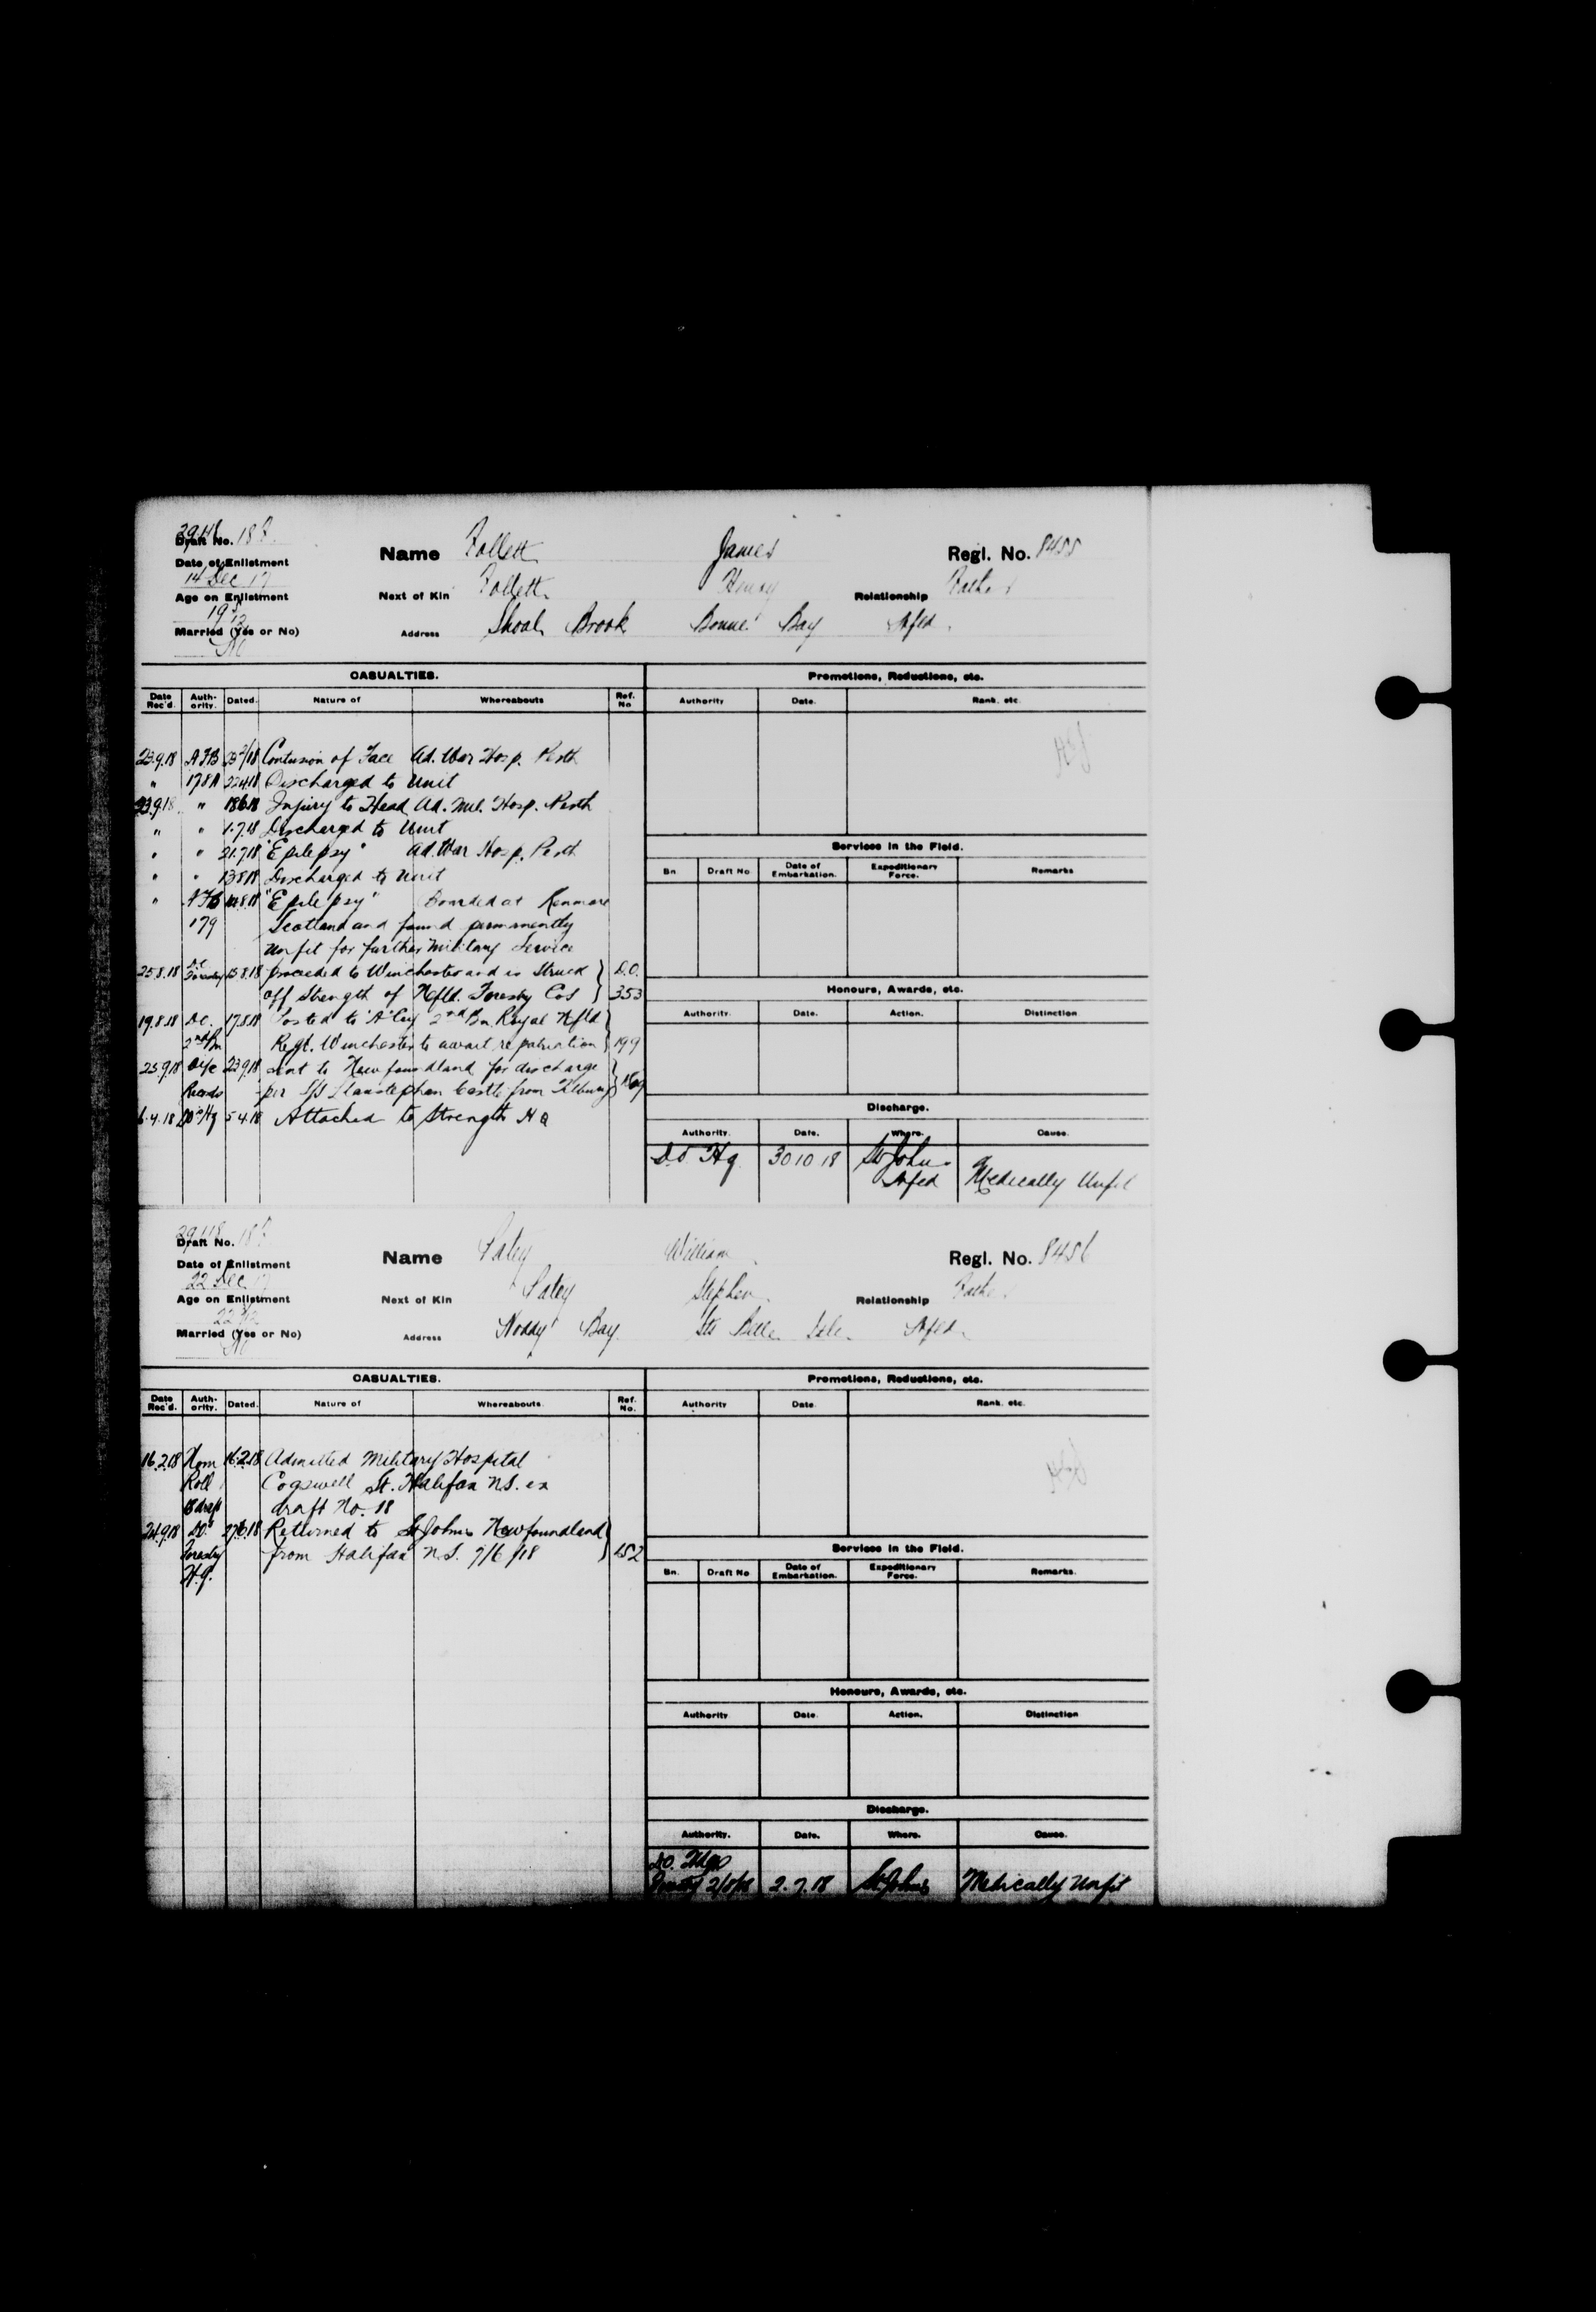 Draft No. 18
Name Follett James Regl. No. 8455
Date of Enlistment
14 Dec 17
Next of Kin Follett Henry Relationship Father
Age on Enlistment
19
Address Shoal Brook Bonne Bay Nfld.
Married (Yes or No)
No
CASUALTIES.
Date Rec'd. Authority. Dated. Nature of Whereabouts Ref. No
23.9.18 AFB Contusion of Face Ad. War Hosp. Perth
" 178A 22.4.18 Discharged to Unit
23.9.18 " 18.6.18 Injury to Head Ad. Mil. Hosp. Perth
" " 1.7.18 Discharged to Unit
" " 21.7.18 "Epilepsy" Ad. War Hosp. Perth
" " 13.8.18 Discharged to Unit
" AFB "Epilepsy" Boarded at Kenmore
179 Scotland and found permanently
unfit for further Military Service
25.8.18 D.O. Forestry 15.8.18 proceeded to Winchester and is Struck D.O.
off Strength of Nfld. Forestry Cos 353
19.8.18 D.O. 17.8.18 Posted to "A" Coy 2nd Bn Royal Nfld
2nd Bn Regt. Winchester to await repatriation 199
25.9.18 23.9.18 Sent to Newfoundland for discharge
Records per S/S Llanstephan Castle from Tilbury
6.4.18 Hq 5.4.18 Attached to Strength HQ
Promotions, Reductions, etc.
Authority Date. Rank, etc
Services in the Field.
Bn Draft No Date of Embarkation. Expeditionary Force. Remarks
Honours, Awards, etc.
Authority. Date. Action. Distinction
Discharge.
Authority. Date. Where. Cause.
D.O. Hq. 30 10 18 St John's Nfld Medically Unfit
Draft No. 18
Name Patey William Regl. No. 8456
Date of Enlistment
22 Dec 17
Next of Kin Patey Stephen Relationship Father
Age on Enlistment
22
Address Noddy Bay Sts Belle Isle Nfld.
Married (Yes or No)
No
CASUALTIES.
Date Rec'd. Authority. Dated. Nature of Whereabouts. Ref. No.
16.2.18 Nom 16.2.18 Admitted Military Hospital
Roll Cogswell St. Halifax N.S. ex
draft draft No. 18
24.9.18 D.O. 27.6.18 Returned to St Johns Newfoundland
Forestry from Halifax N.S. 7/6/18 152
H.q.
Promotions, Reductions, etc.
Authority Date. Rank. etc.
Services in the Field.
Bn. Draft No Date of Embarkation. Expeditionary Force. Remarks.
Honours, Awards, etc.
Authority Date. Action. Distinction
Discharge.
Authority. Date. Where. Cause.
D.O.
2.7.18 St. Johns Medically Unfit